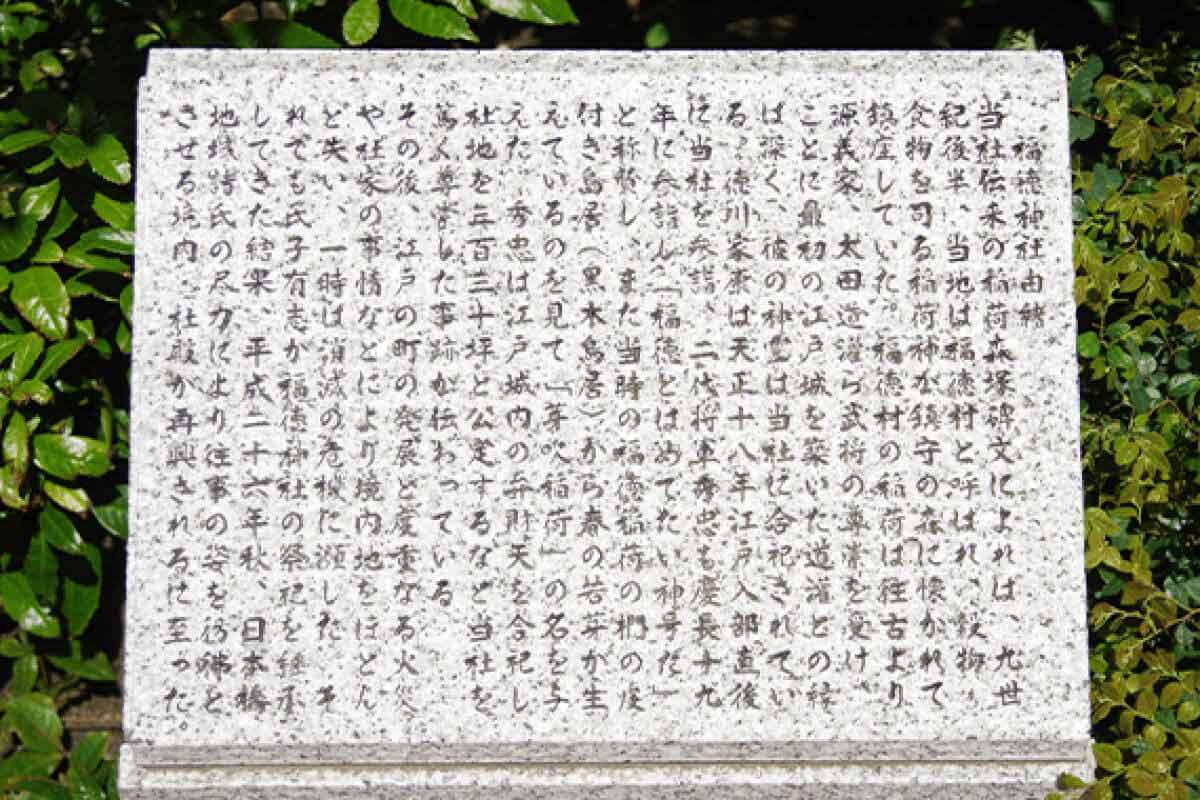 福徳神社由緒
当社伝来の稲荷森塚碑文によれば、九世
紀後半、当地は福徳村と呼ばれ、穀物、
食物を司る稲荷神が鎮守の森に懐かれて
鎮座していた。福徳村の稲荷は往古より
源義家、太田道灌ら武将の尊崇を受け、
ことに最初の江戸城を築いた道灌との縁
は深く、彼の神霊は当社に合祀されてい
る。徳川家康は天正十八年江戸入部直後
に当社を参詣、二代将軍秀忠も慶長十九
年に参詣し「福徳とはめでたい神号だ」
と称賛し、また当時の福徳稲荷の椚の皮
付き鳥居（黒木鳥居）から春の若芽が生
えているのを見て「芽吹稲荷」の名を与
えた。秀忠は江戸城内の弁財天を合祀し
社地を三百三十坪と公定するなど当社を
篤く尊崇した事跡が伝わっている
その後、江戸の町の発展と度重なる火災
や社家の事情などにより境内地をほとん
ど失い、一時は消滅の危機に瀕した。そ
れでも氏子有志が福徳神社の祭祀を継承
してきた結果、平成二十六年秋、日本橋
地域諸氏の尽力により往事の姿を彷彿と
させる境内、社殿が再興されるに至った。